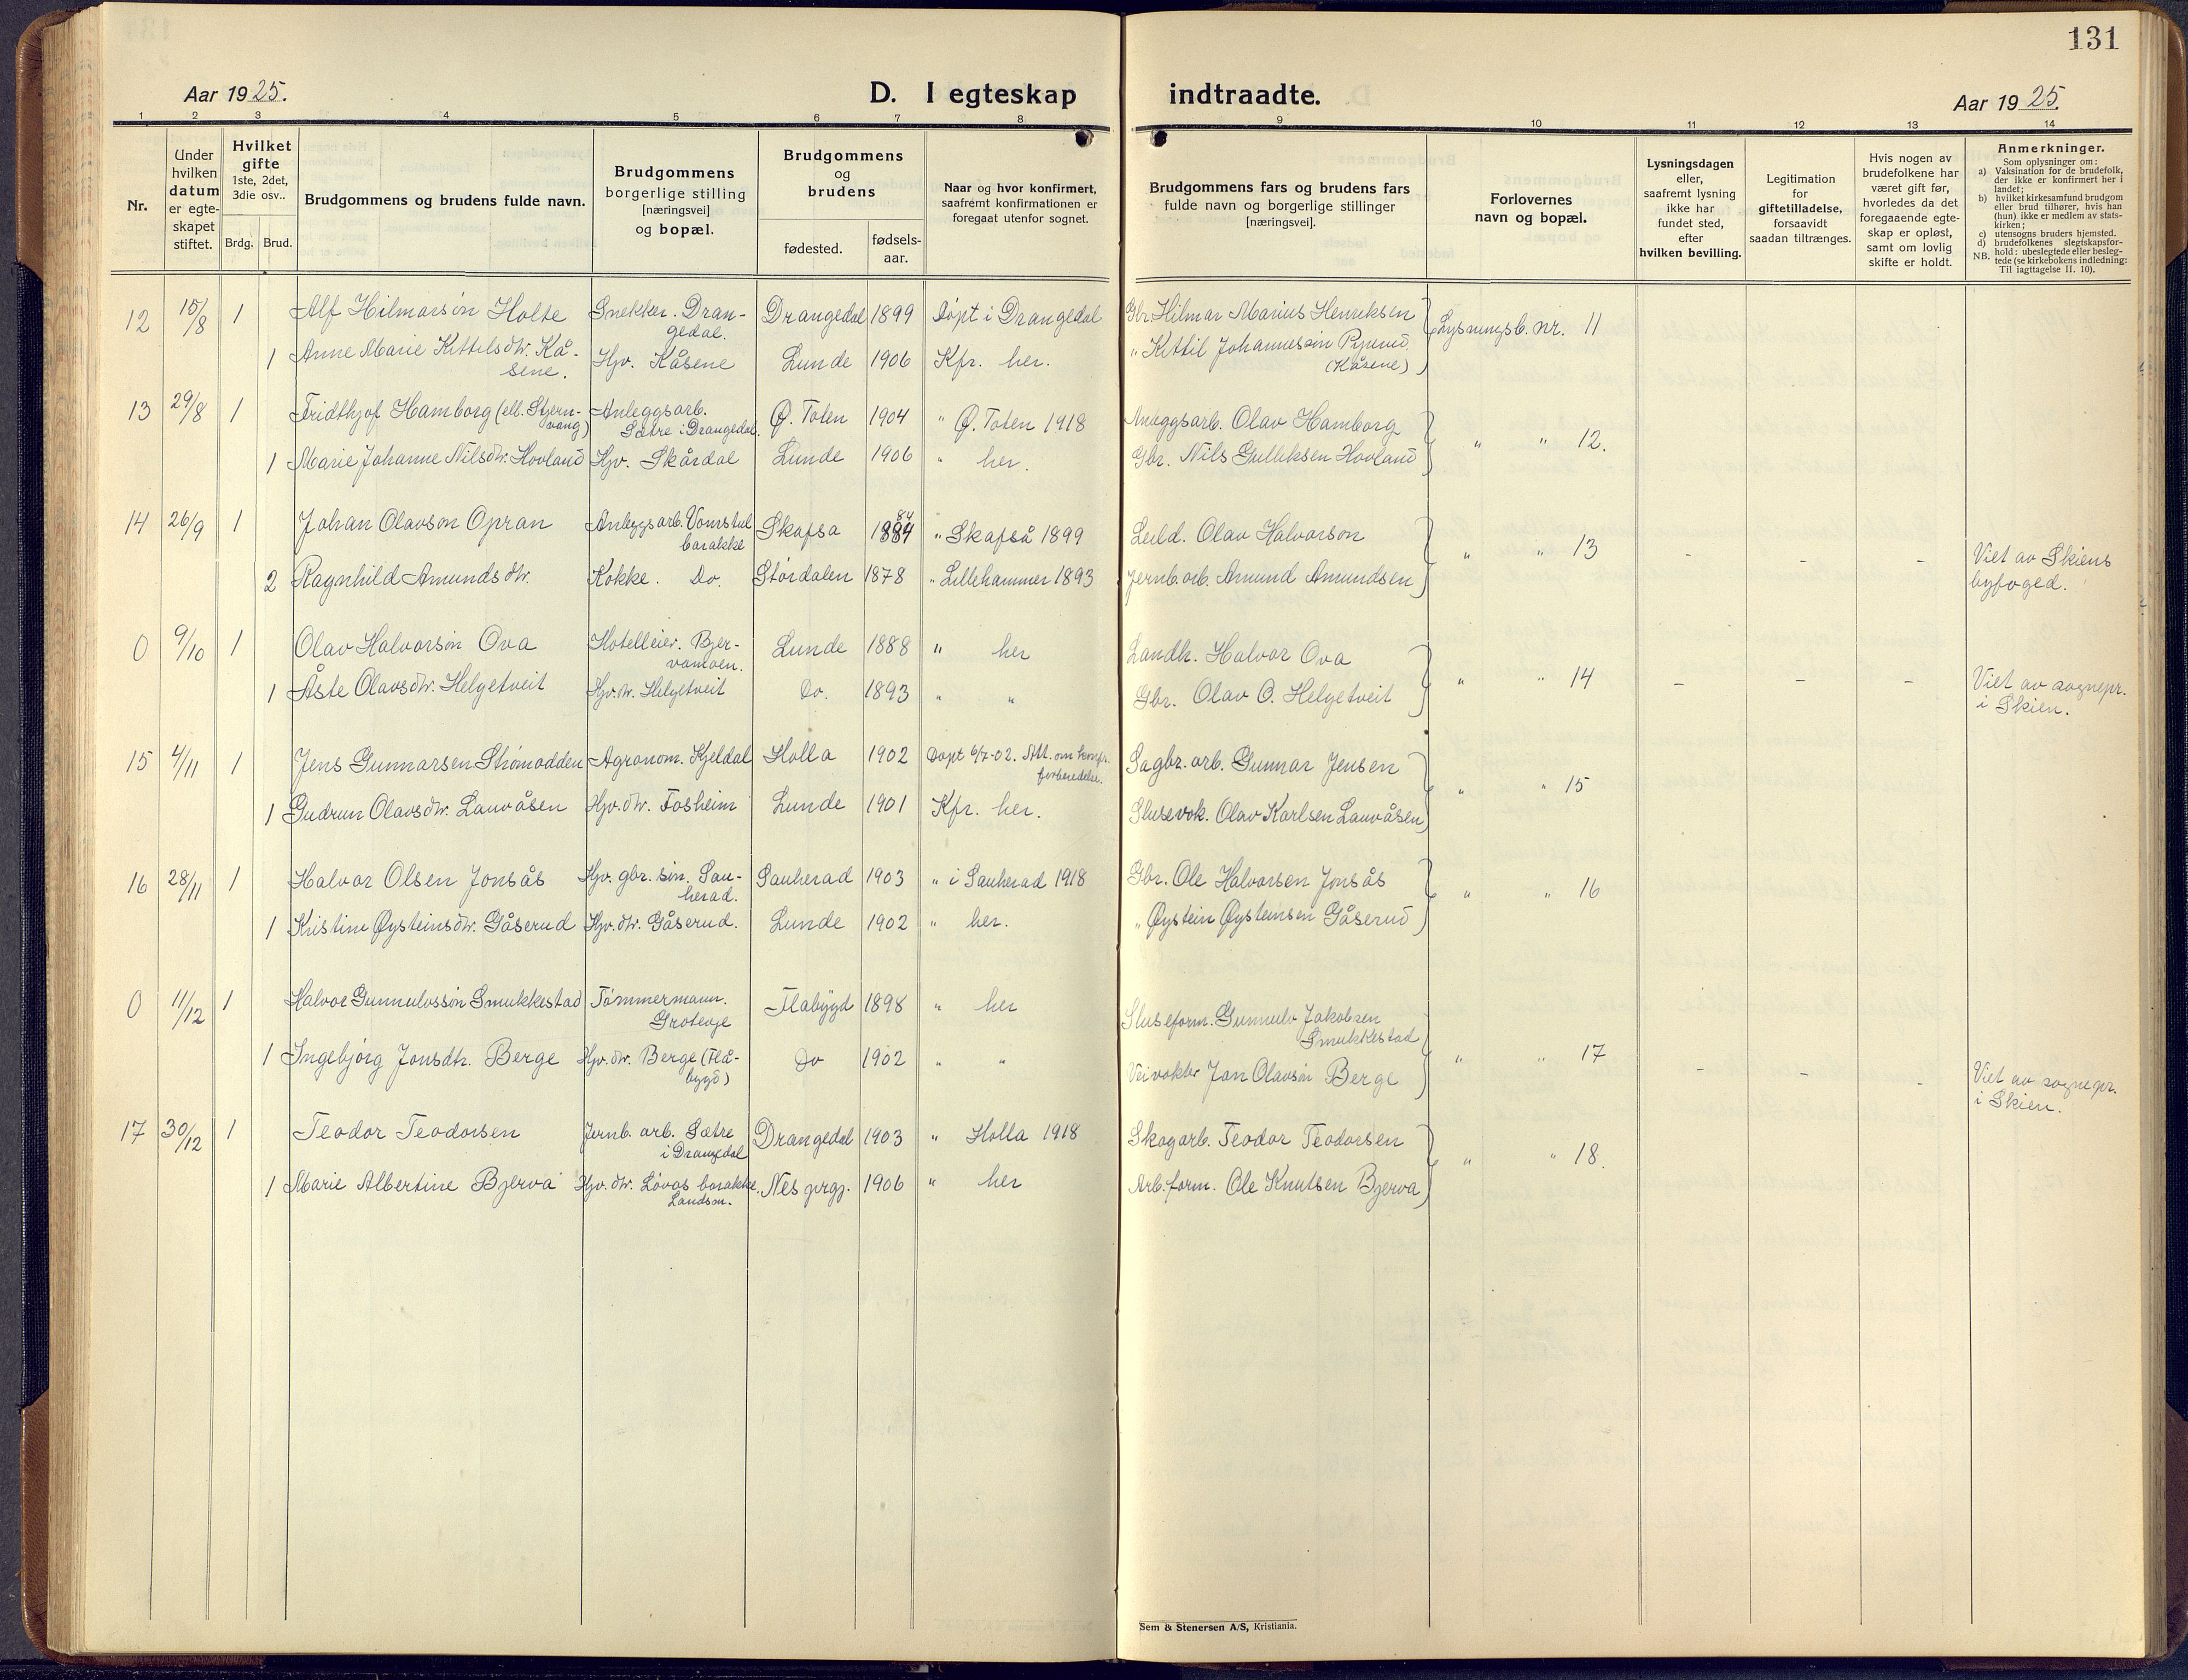 131
Aar 1925.
D. I egteskap indtraadte.
Aar 1925.
1 2 3 4 5 6 7 8 9 10 11 12 13 14
Nr.
Under hvilken datum er egteskapet stiftet.
Hvilket gifte 1ste, 2det, 3die osv..
Brdg. Brud.
Brudgommens og brudens fulde navn.
Brudgommens borgerlige stilling [næringsvei] og bopæl.
Brudgommens og brudens
fødested. fødselsaar.
Naar og hvor konfirmert, saafremt konfirmationen er foregaat utenfor sognet.
Brudgommens fars og brudens fars fulde navn og borgerlige stillinger [næringsvei].
Forlovernes navn og bopæl.
Lysningsdagen eller, saafremt lysning ikke har fundet sted, efter hvilken bevilling.
Legitimation for giftetilladelse, forsaavidt saadan tiltrænges.
Hvis nogen av brudefolkene har været gift før, hvorledes da det foregaaende egteskap er opløst, samt om lovlig skifte er holdt.
Anmerkninger.
Som oplysninger om:
a) Vaksination for de brudefolk, der ikke er konfirmert her i landet;
b) hvilket kirkesamfund brudgom eller brud tilhører, hvis han (hun) ikke er medlem av statskirken;
c) utensogns bruders hjemsted.
d) brudefolkenes slegtskapsforhold: ubeslegtede eller beslegtede (se kirkebokens indledning:
NB. Til iagttagelse II. 10).
12 15/8 1 Alf Hilmarsøn Holte Snekker. Drangedal. Drangedal 1899 Døpt i Drangedal Gbr. Hilmar Marius Henriksen Lysningsb. nr. 11
1 Anne Marie Kittilsdtr. Kåsene. Hjv. Kåsene Lunde 1906 Kfr. her. " Kittil Johannesøn (Kåsene)
13 29/8 1 Fridthjof Hamborg (ell. Stjernvang) Anleggsarb. Sætre i Drangedal. Ø. Toten 1904 " Ø. Toten 1918 Anleggsarb. Olav Hamborg " " 12.
1 Marie Johanne Nilsdtr. Hovland Hjv. Skårdal Lunde 1906 " her. Gbr. Nils Gulliksen Hovland
14 26/9 1 Johan Olavson Opran Anlegsarb. Vomstul barakke Skafsa 84 1884 " Skafså 1899 Leild. Olav Halvorson " " 13 - - - Viet av Skiens byfoged.
2 Ragnhild Amundsdtr. Kokke. Do. Størdalen 1878 " Lillehammer 1893 Jernb. arb. Amund Amundsen
0 9/10 1 Olav Halvorsøn Ova Hotelleier. Bjervamoen. Lunde 1888 " her Landh. Halvor Ova " " 14 - - - Viet av sognepr. i Skien.
1 Åste Olavsdtr. Helgetveit Hjv. dtr. Helgetveit Do. 1893 " " Gbr. Olav O. Helgetveit
15 4/11 1 Jens Gunnarsen Strømodden Agronom. Kjeldal Holla 1902 Døpt 6/7-02. Att. om konf. forberedelse. Sagbr. arb. Gunnar Jensen " " 15
1 Gudrun Olavsdtr. Lauvåsen Hjv. dtr. Fosheim Lunde 1901 Kfr. her. Slusevok. Olav Karlsen Lauvåsen
16 28/11 1 Halvor Olsen Jonsås Hjv. gbr. søn. Sauherad. Sauherad 1903 " i Sauherad 1918 Gbr. Ole Halvorsen Jonsås " " 16
1 Kristine Øysteinsdtr. Gåserud Hjv. dtr. Gåserud. Lunde 1902 " her. " Øystein Øysteinsen Gåserud
0 11/12 1 Halvor Gunnulvssøn Smukkestad Tømmermann. Groteøje Flabygd 1898 " her Sluseform. Gunnulv Jakobsen Smukkestad " " 17 - - - Viet av sognepr. i Skien.
1 Ingebjørg Jonsdtr. Berge Hjv. dtr. Berge (Flåbygd) Do 1902 " " Veivokter Jon Olavsøn Berge
17 30/12 1 Teodor Teodorsen Jernb. arb. Sætre i Drangedal Drangedal 1903 " Holla 1918 Skogarb. Teodor Teodorsen " " 18.
1 Marie Albertine Bjerva Hjv. dtr. Løvås barakke. Landsm. Nes prgj. 1906 " her Arb. form. Ole Knutsen Bjerva
Sem & Stenersen A/S, Kristiania.